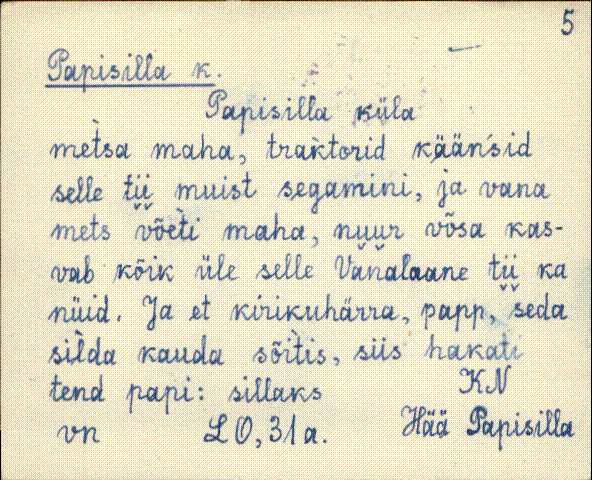 5
Papisilla k.
Papisilla küla
mètsa maha, traktorid käänśid
selle tii muist segamini, ja vana
mets võèti maha, nuur võsa kas-
vab kõik üle selle Vanalaane tii ka
nüid. Ja et kirikuhärra, papp, seda
silda kauda sõitis, siis hakati
tend papi: sillaks KN
vn LO, 31a. Hää Papisilla